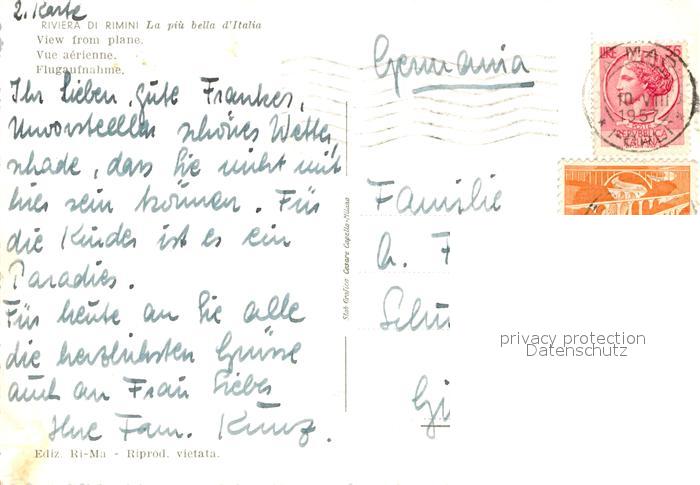 2. Karte
RIVIERA DI RIMINI La più bella d'Italia
View from plane.
Vue aérienne.
Flugaufnahme.
Ihr Lieben, gute Frankes,
Unvorstellbar schönes Wetter,
schade, dass Sie nicht mit
hier sein können. Für
die Kinder ist es ein
Paradies.
Für heute an Sie alle
die herzlichsten Grüsse
auch an Frau Liebe
Ihre Fam. Kunz.
Ediz. Ri-Ma - Riprod. vietata.
Stab Grafico Cesare Capello-Milano
Germania
LIRE
10 VIII
195
REPVBBLICA
ITALIANA
Familie
A. F
Schu
Gi
privacy protection
Datenschutz